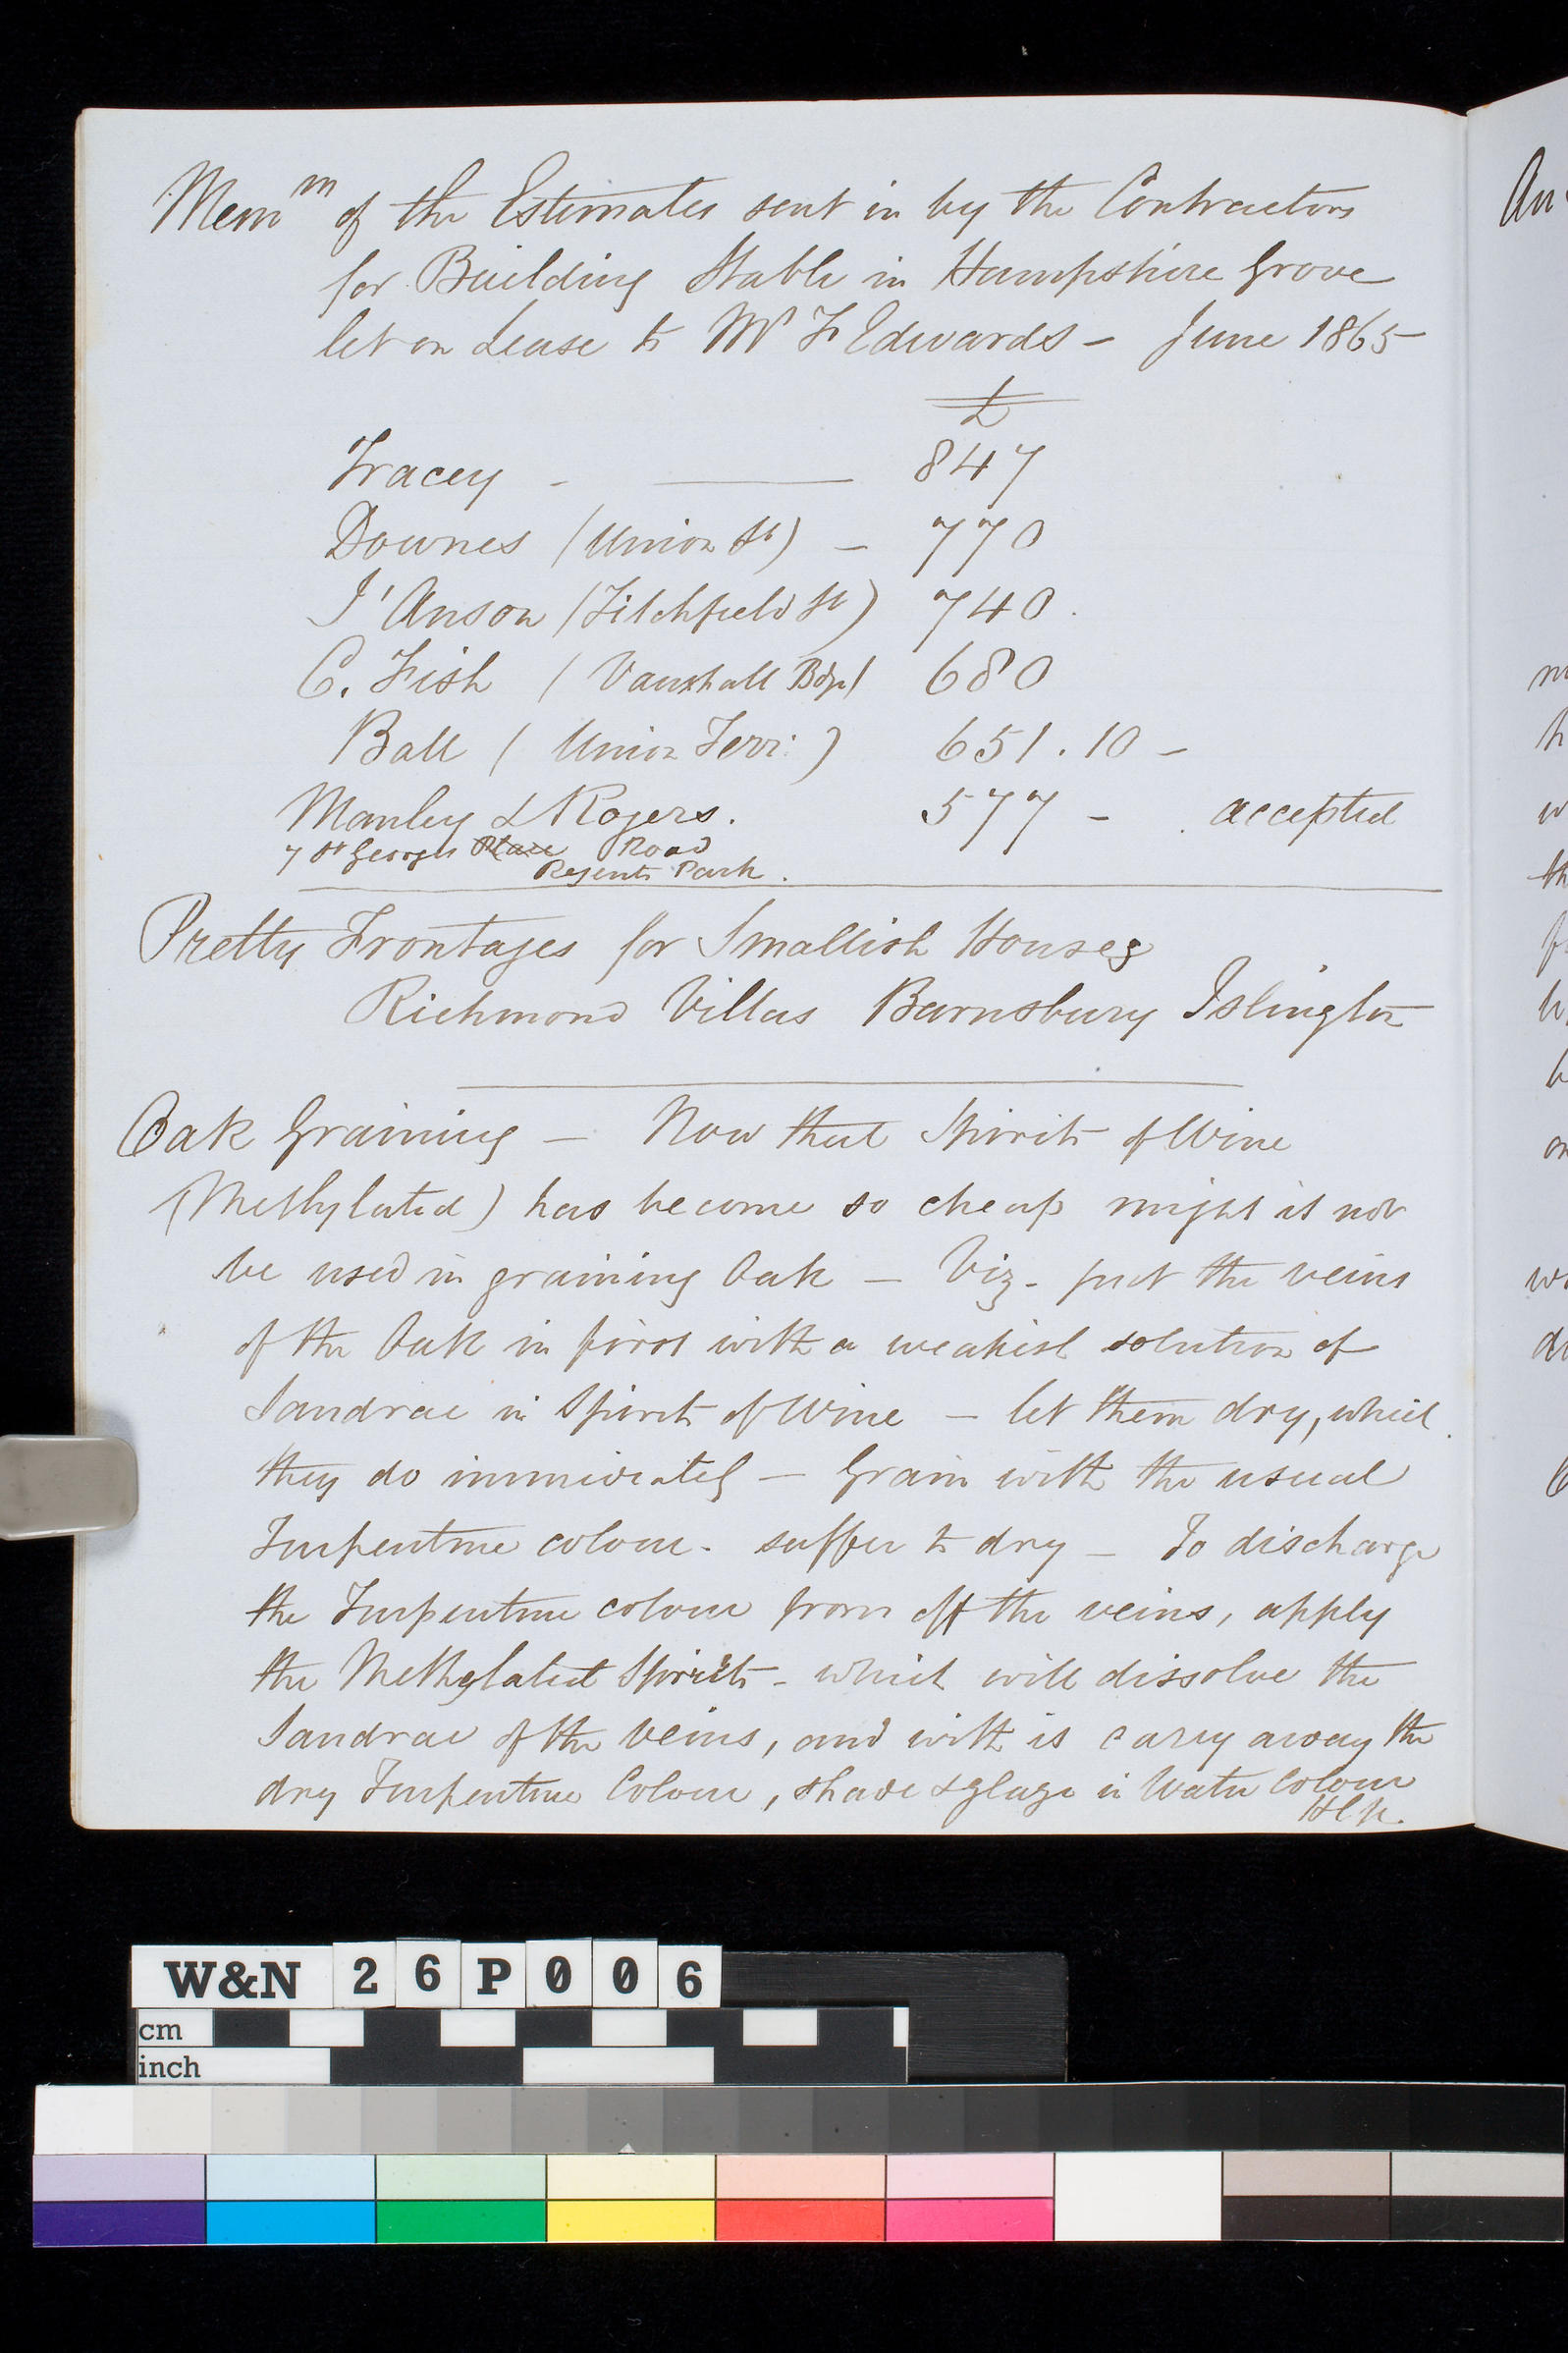 Mem^m of the Estimates sent in by the Contractors
for Building Stable in Hampshire Grove
let on Lease to Mr F Edwards – June 1865
£
Tracey - — 847
Downes (Union St) – 770
I'Anson (Titchfield St) 740.
C. Fish (Vauxhall Bdge) 680
Ball (Union Terr:) 651.10 –
Manley & Rogers. 577 – accepted
7 St Georges Place Road
Regents Park.
Pretty Frontages for Smallish Houses
Richmond Villas Barnsbury Islington
Oak Graining – Now that Spirits of Wine
(Methylated) has become so cheap might it not
be used in graining Oak – Viz - put the veins
of the Oak in first with a weakish solution of
Sandrac in Spirits of Wine – let them dry, which
they do immediately – Grain with the usual
Turpentine colour - suffer to dry – To discharge
the Turpentine colour from off the veins, apply
the Methylated Spirits - which will dissolve the
Sandrac of the veins, and with is carry away the
dry Turpentine Colour, shade & glaze in Water Colour
HCN.
An
m
h
w
th
h
on
W&N 26P006
cm
inch